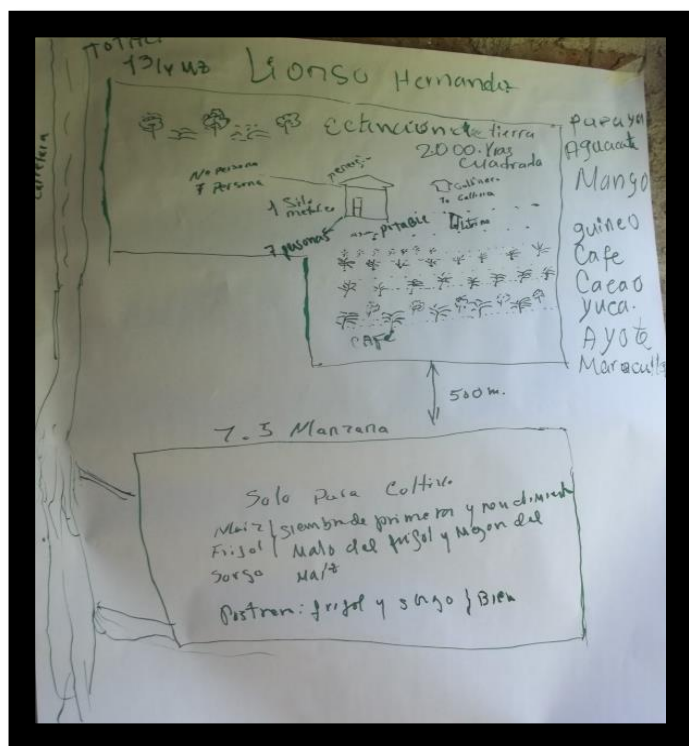 TOTAL
1 3/4 MZ
Lionso Hernandez
Carretera
Ectincion de tierra
2000. Vras
Cuadrada
No persona
7 Persona
1 Silo
metalico
7 pesonas
Gallinero
10 Gallina
Letrina
pitabie
CAFE
Papaya
Aguacate
Mango
guineo
Cafe
Cacao
yuca.
Ayote
Maraculla
500m.
7.5 Manzana
Solo Para Coltivo
Maiz } siembra de primera y rendimiento
Frijol } Malo del frijol y Mejor del
Sorgo Maiz
Postrera: frijol y sorgo } Bien